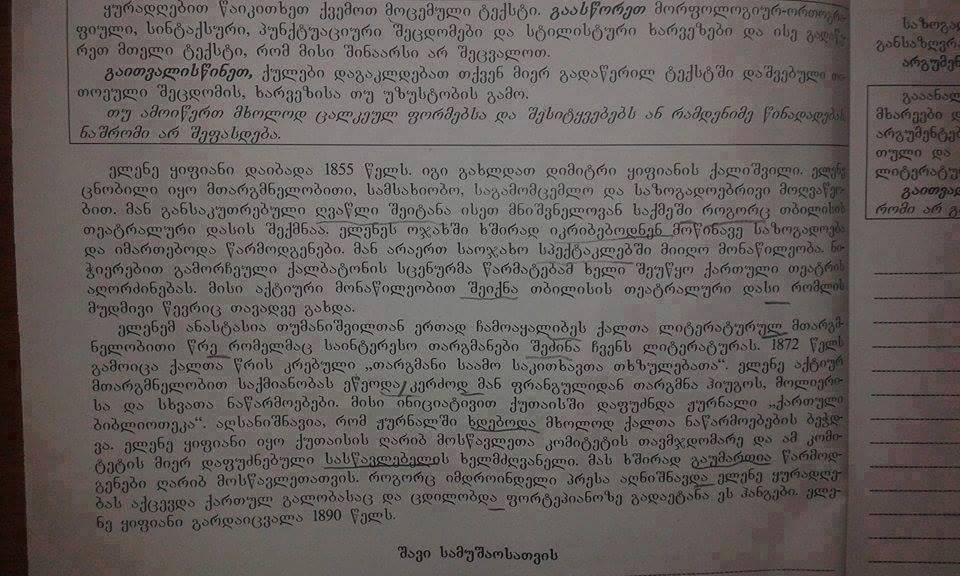 ყურადღებით წაიკითხეთ ქვემოთ მოცემული ტექსტი. გაასწორეთ მორფოლოგიურ-ორთოგრა-
ფიული, სინტაქსური, პუნქტუაციური შეცდომები და სტილისტური ხარვეზები და ისე გადაწე-
რეთ მთელი ტექსტი, რომ მისი შინაარსი არ შეცვალოთ.
გაითვალისწინეთ, ქულები დაგაკლდებათ თქვენ მიერ გადაწერილ ტექსტში დაშვებული თი-
თოეული შეცდომის, ხარვეზისა თუ უზუსტობის გამო.
თუ ამოიწერთ მხოლოდ ცალკეულ ფორმებსა და შესიტყვებებს ან რამდენიმე წინადადებას
ნაშრომი არ შეფასდება.
ელენე ყიფიანი დაიბადა 1855 წელს. იგი გახლდათ დიმიტრი ყიფიანის ქალიშვილი. ელენე
ცნობილი იყო მთარგმნელობითი, სამსახიობო, საგამომცემლო და საზოგადოებრივი მოღვაწეო-
ბით. მან განსაკუთრებული ღვაწლი შეიტანა ისეთ მნიშვნელოვან საქმეში როგორც თბილისის
თეატრალური დასის შექმნაა. ელენეს ოჯახში ხშირად იკრიბებოდნენ მოწინავე საზოგადოება
და იმართებოდა წარმოდგენები. მან არაერთ საოჯახო სპექტაკლებში მიიღო მონაწილეობა. ნი-
ჭიერებით გამორჩეული ქალბატონის სცენურმა წარმატებამ ხელი შეუწყო ქართული თეატრის
აღორძინებას. მისი აქტიური მონაწილეობით შეიქნა თბილისის თეატრალური დასი რომლის
მუდმივი წევრიც თავადვე გახდა.
ელენემ ანასტასია თუმანიშვილთან ერთად ჩამოაყალიბეს ქალთა ლიტერატურულ მთარგმ-
ნელობითი წრე რომელმაც საინტერესო თარგმანები შეძინა ჩვენს ლიტერატურას. 1872 წელს
გამოიცა ქალთა წრის კრებული „თარგმანი საამო საკითხავთა თხზულებათა“. ელენე აქტიურ
მთარგმნელობით საქმიანობას ეწეოდა კერძოდ მან ფრანგულიდან თარგმნა ჰიუგოს, მოლიერი-
სა და სხვათა ნაწარმოებები. მისი ინიციატივით ქუთაისში დაფუძნდა ჟურნალი „ქართული
ბიბლიოთეკა“. აღსანიშნავია, რომ ჟურნალში ხდებოდა მხოლოდ ქალთა ნაწარმოებების ბეჭდ-
ვა. ელენე ყიფიანი იყო ქუთაისის ღარიბ მოსწავლეთა კომიტეტის თავმჯდომარე და ამ კომი-
ტეტის მიერ დაფუძნებული სასწავლებელის ხელმძღვანელი. მას ხშირად გაუმართია წარმოდ-
გენები ღარიბ მოსწავლეთათვის. როგორც იმდროინდელი პრესა აღნიშნავდა ელენე ყურადღე-
ბას აქცევდა ქართულ გალობასაც და ცდილობდა ფორტეპიანოზე გადაეტანა ეს ჰანგები. ელე-
ნე ყიფიანი გარდაიცვალა 1890 წელს.
შავი სამუშაოსათვის
საზოგად
განსაზღვრ
არგუმენ
გააანალ
მხარეები დ
არგუმენტებ
თული და
ლიტერატურ
გაითვალ
რომი არ გ